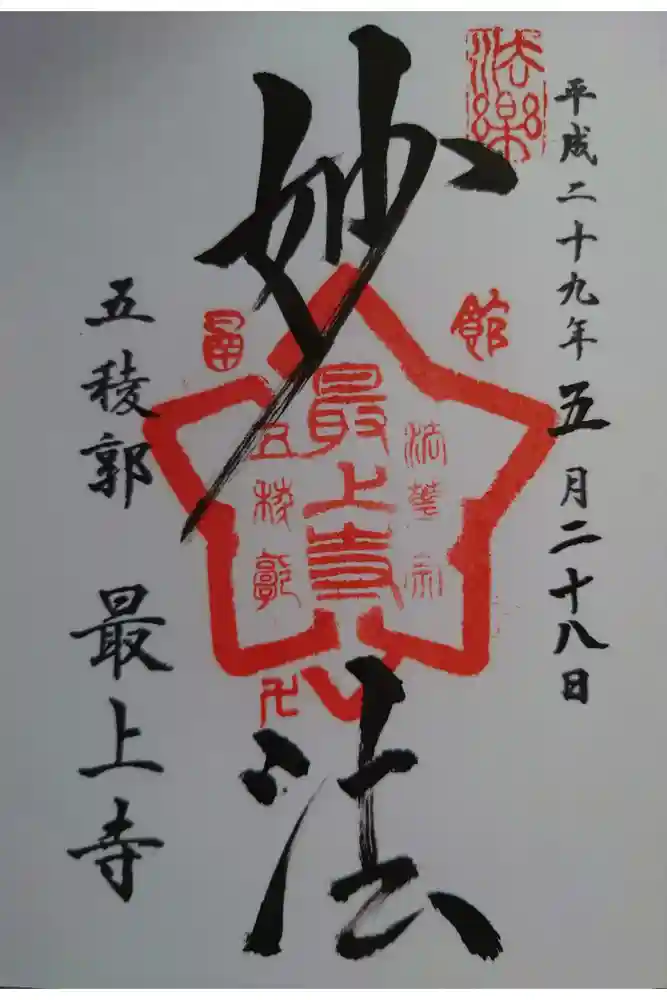 法樂
平成二十九年五月二十八日
妙法
凾館
法華宗
最上寺
五稜郭
卍
五稜郭 最上寺